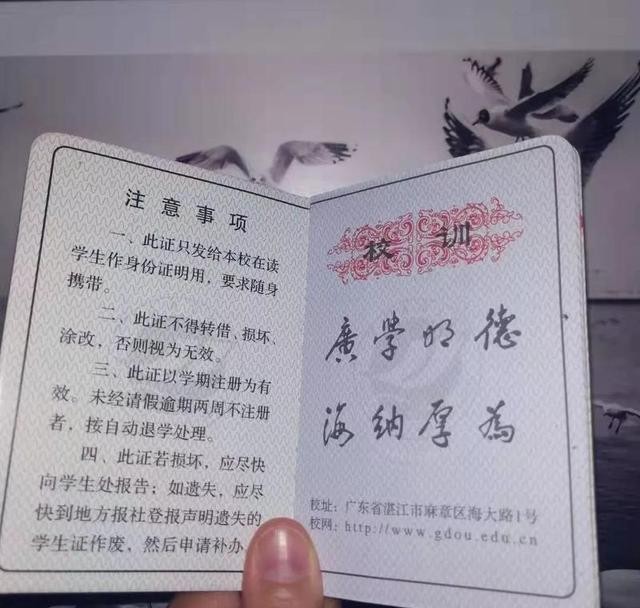 注意事项
一、此证只发给本校在读
学生作身份证明用，要求随身
携带。
二、此证不得转借、损坏、
涂改，否则视为无效。
三、此证以学期注册为有
效。未经请假逾期两周不注册
者，按自动退学处理。
四、此证若损坏，应尽快
向学生处报告；如遗失，应尽
快到地方报社登报声明遗失的
学生证作废，然后申请补办。
校训
廣學明德
海納厚為
校址：广东省湛江市麻章区海大路1号
校网：http://www.gdou.edu.cn